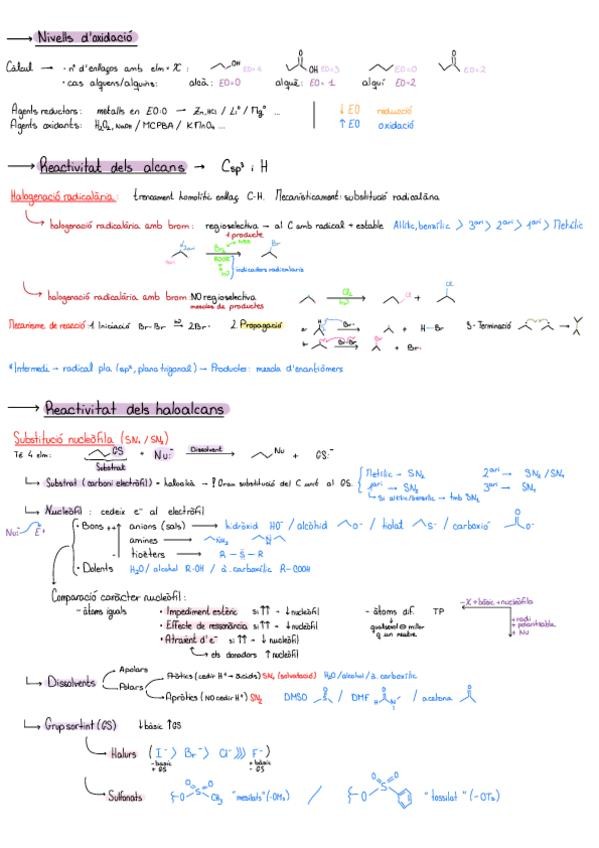 → Nivells d'oxidació
Càlcul → · nº d'enllaços amb elm + X : OH EO=1 O OH EO=3 EO=0 O EO=2
· cas alquens/alquins: alcà: EO=0 alquè: EO= 1 alquí EO=2
Agents reductors: metalls en EO:0 → Zn,HCl / Li⁰ / Mg⁰ ... ↓ EO reducció
Agents oxidants: H₂O₂, NaOH / MCPBA / KMnO₄ ... ↑ EO oxidació
→ Reactivitat dels alcans → Csp³ i H
Halogenació radicalària: trencament homolític enllaç C-H. Mecanísticament: substitució radicalària
halogenació radicalària amb brom: regioselectiva → al C amb radical + estable Al·lílic, benzílic > 3ari > 2ari > 1ari > Metílic
1 producte
Br₂
ROOR
hν
Br
indicadors radicalaris
halogenació radicalària amb brom NO regioselectiva
mescles de productes
Cl₂
hν
Cl + Cl
Mecanisme de reacció 1. Iniciació Br-Br hν 2Br· 2. Propagació Br· + H-Br 3- Terminació
Br-Br + Br·
*Intermedi → radical pla (sp², plana trigonal) → Productes: mescla d'enantiòmers
→ Reactivitat dels haloalcans
Substitució nucleòfila (SN₁ / SN₂)
Té 4 elm: GS + Nu:⁻ Dissolvent Nu + GS:⁻
Substrat
Substrat (carboni electròfil) = haloalcà → Gran substitució del C unit al GS.
Metílic → SN₂ 2ari → SN₂/SN₁
1ari → SN₂ 3ari → SN₁
Si al·lílic/benzílic → tmb SN₁
Nucleòfil : cedeix e⁻ al electròfil
Nu:⁻ E⁺
· Bons ++ anions (sals) → hidròxid HO⁻ / alcòxid O⁻ / tiolat S⁻ / carboxió O O⁻
amines → NH₂ N
tioèters → R-S-R
· Dolents H₂O / alcohol R-OH / à. carboxílic R-COOH
Comparació caràcter nucleòfil:
- àtoms iguals · Impediment estèric si ↑↑ → ↓ nucleòfil - àtoms dif. TP - X + bàsic + nucleòfila
· Efecte de ressonància si ↑↑ → ↓ nucleòfil
· Atraient d'e⁻ si ↑↑ → ↓ nucleòfil
els donadors ↑ nucleòfil
qualsevol ⊖ millor
q un neutre
+ radi
+ polaritzable
+ Nu
Dissolvents Apolars
Polars Pròtics (cedir H⁺ → àcids) SN₁ (solvatació) H₂O / alcohol / à. carboxílic
Apròtics (NO cedir H⁺) SN₂ DMSO O S / DMF O H N / acetona O
Grup sortint (GS) ↓ bàsic ↑ GS
Halurs ( I⁻ > Br⁻ > Cl⁻ >>> F⁻ )
- bàsic + bàsic
+ GS - GS
Sulfonats O O O S CH₃ "mesilats" (-OMs) / O O O S "tossilat" (-OTs)